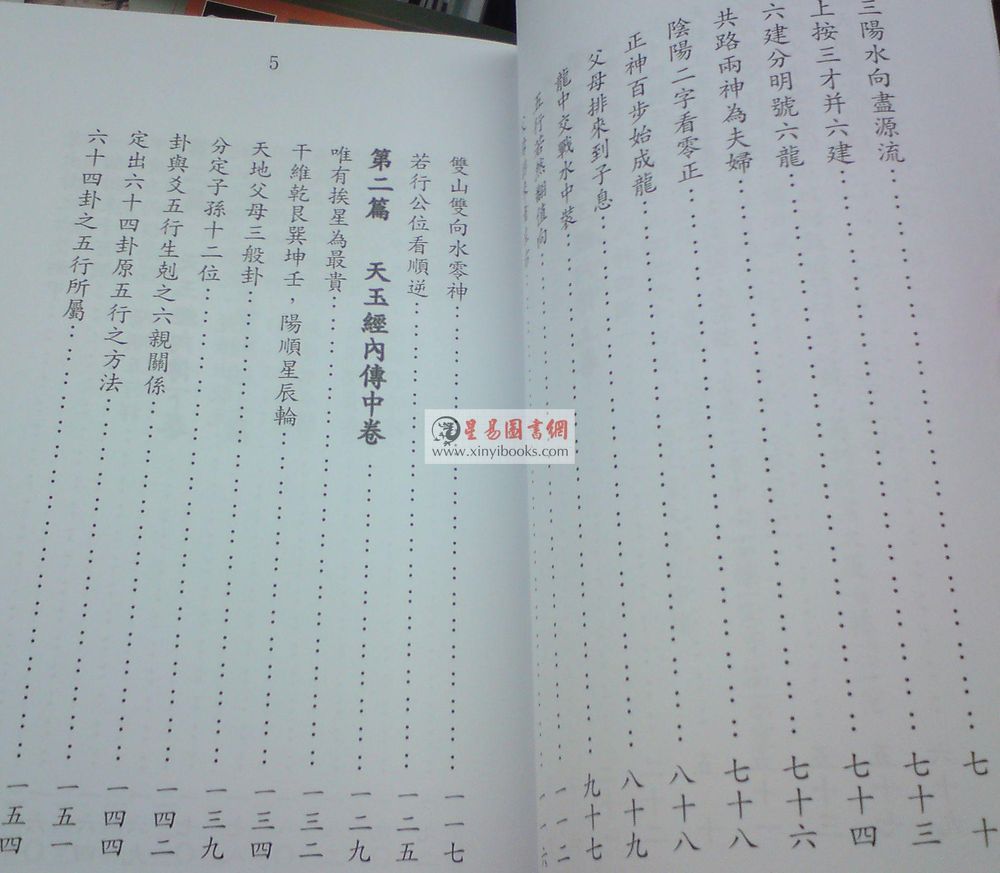 三陽水向盡源流……七十
上按三才并六建……七十三
六建分明號六龍……七十四
共路兩神為夫婦……七十六
陰陽二字看零正……七十八
正神百步始成龍……八十八
父母排來到子息……八十九
龍中交戰水中裝……九十七
五行若然翻值向……一一二
一一六
5
雙山雙向水零神……一一七
若行公位看順逆……一二五
第二篇　天玉經內傳中卷……一二九
唯有挨星為最貴……一三二
干維乾艮巽坤壬，陽順星辰輪……一三四
天地父母三般卦……一三九
分定子孫十二位……一四二
卦與爻五行生剋之六親關係……一四四
定出六十四卦原五行之方法……一五一
六十四卦之五行所屬……一五四
星易圖書網
www.xinyibooks.com